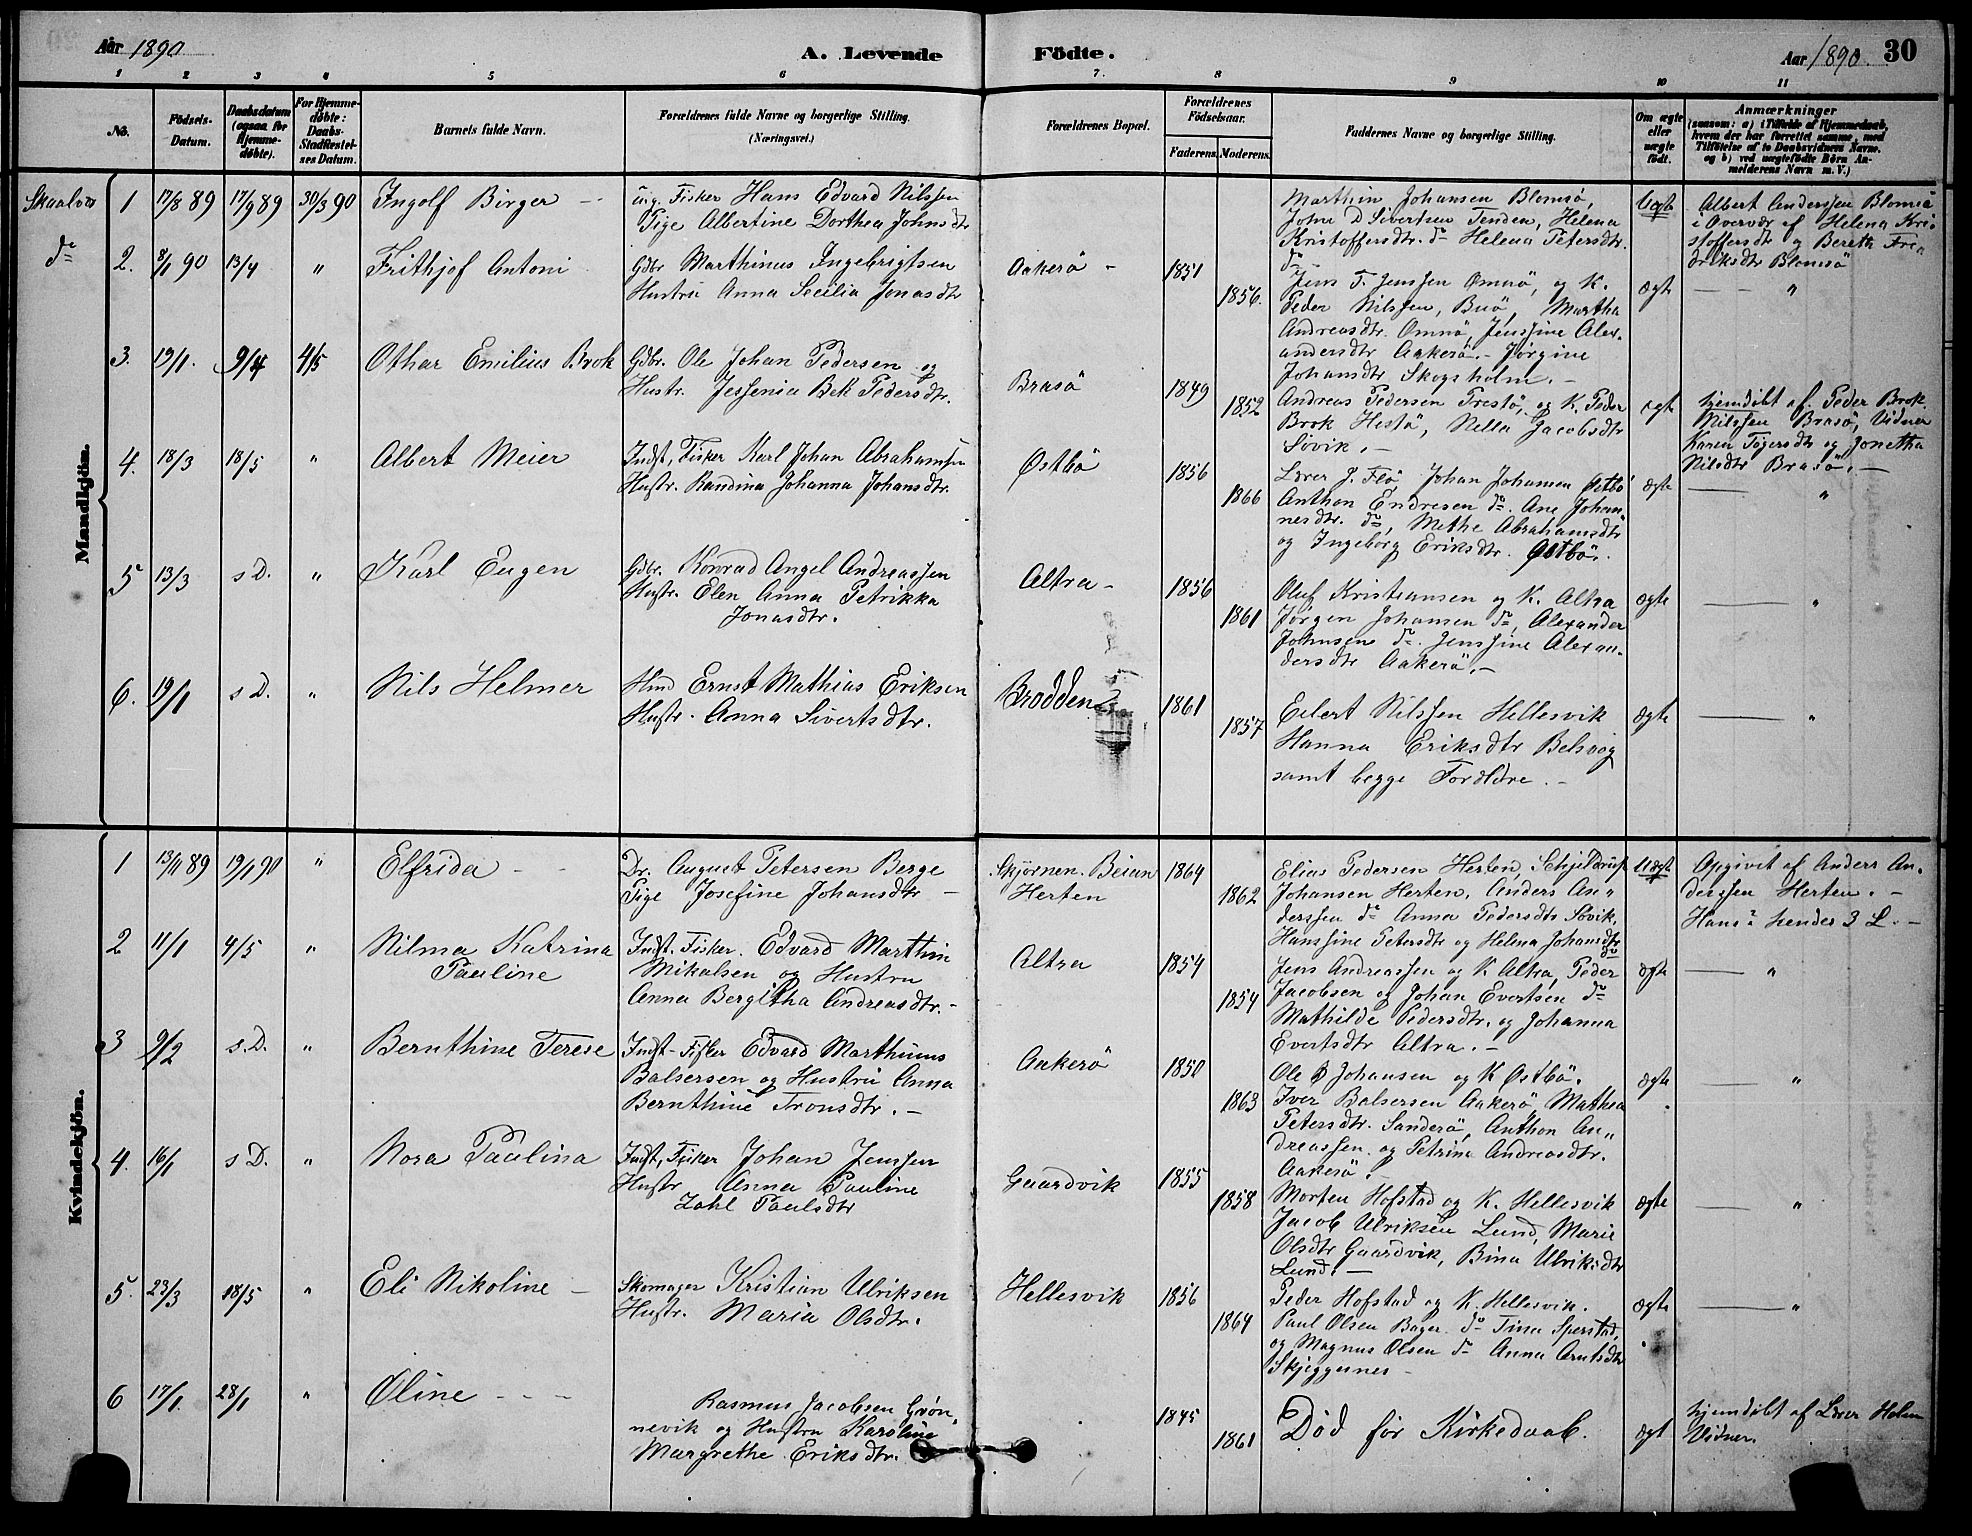 Aar 1890
A. Levende Födte.
Aar 1890.
30
1 2 3 4 5 6 7. 8 9 10 11
No.
Födsels-Datum.
Daabsdatum (ogsaa for Hjemme-döbte).
For Hjemme-döbte: Daabs-Stadfæstel-ses Datum.
Barnets fulde Navn.
Forældrenes fulde Navne og borgerlige Stilling.
(Næringsvei.)
Forældrenes Bopæl.
Forældrenes Födselsaar.
Faderens. Moderens.
Faddernes Navne og borgerlige Stilling.
Om ægte eller uægte födt.
Anmærkninger
(saasom: a) i Tilfælde af Hjemmedaab,
hvem der har forrettet samme, med
Tilföielse af to Daabsvidners Navne.
og b) ved uægtefödte Börn An-
melderens Navn m. V.)
Mandkjön.
Skaalvær 1 17/8 89 17/9 89 30/3 90 Ingolf Birger -
ug. Fisker Hans Edvard Nilssen
Pige Albertine Dorthea Johnsdtr
Marthin Johansen Blomsö,
John D Sivertsen Tenden, Helena
Kristoffersdtr. do Helena Petersdtr.
do
Uægte
Albert Anderssen Blomsö
i Overvær af Helena Kri-
stoffersdtr og Bereth Fre
driksdtr Blomsö
do 2. 8/1 90 13/4 " Frithjof Antoni
Gdbr Marthinus Ingebrigtsen
Hustru Anna Secilia Jonasdtr
Aakerö - 1851 1856.
Jens T. Jenssen Omnö, og K.
Peder Nilssen, Buö, Martha
Andreasdtr. Omnö, Jenssine Alex-
andersdtr Aakerö. - Jörgine
Johansdtr Skogsholm. -
ægte — "
3. 19/1. 9/4 4/5 Othar Emilius Brok
Gdbr. Ole Johan Pedersen og
Hustr. Jessenia Bek Pedersdtr.
Brasö 1849 1852
Andreas Pedersen Trestö, og K. Peder
Brok Hestö, Nella Jacobsdtr
Sövik. -
ægt
hjemdöbt af Peder Brok
Nilssen Brasö, Vidner
Karen Tögersdtr og Jonetha
Nilsdtr Brasö. -
4. 18/3 18/5 " Albert Meier
Indst, Fisker Karl Johan Abrahamsen
Hustr. Randina Johanna Johansdtr.
Østbö 1856 1866
Lærer J. Flö Johan Johansen Østbö
Anthon Endresen do. Ane Johan-
nesdtr. do, Methe Abrahamsdtr
og Ingeborg Eriksdtr. Østbö.
ægte — "
5 13/3 s D. " Karl Eugen
Gdbr. Konrad Angel Andreassen
Hustr. Elen Anna Petrikka
Jonasdtr.
Altra - 1856 1861
Oluf Kristiansen og K. Altra
Jörgen Johansen do, Alexander
Johnsen do. Jenssine Alexan-
dersdtr Aakerö. -
ægte — "
6. 19/1 s D. " Nils Helmer
Ernst Mathias Eriksen
Hustr. Anna Sivertsdtr.
Brodden 1861 1857
Eilert Nilssen Hellesvik
Hanna Eriksdtr Belsvog
samt begge Forældre. -
ægte — "
Kvindekjön.
1 13/11 89 19/1 90 " Elfrida - -
Dr. August Petersen Berge
Pige Josefine Johansdtr -
Skjörnen. Beian
Herten
1864 1862
Elias Pedersen Herten, Schjeldrup
Johansen Herten, Anders An-
derssen do Anna Pedersdtr Sövik,
Hanssine Petersdtr og Helena Johansdtr
do
Uægte
Opgivet af Anders An-
derssen Herten. -
Hans 2 hendes 3 L. -
2 11/1 4/5 " Nilma Katrina
Pauline
Indst. Fisker. Edvard Marthin
Mikalsen og Hustru
Anna Bergitha Andreasdtr. -
Altra 1854 1854
Jens Andreassen og K Altra, Peder
Jacobsen og Johan Evertsen do
Mathilde Pedersdtr. og Johanna
Evertsdtr Altra. -
ægte — "
3 9/2 s.D. " Bernthine Terese
Indst- Fisker Edvard Marthinus
Balsersen og Hustru Anna
Bernthine Tronsdtr. -
Aakerö 1850 1863
Ole Johansen og K Østbö.
Iver Balsersen Aakerö, Mathea
Petersdtr. Sanderö, Anthon An-
dreassen og Petrina Andreasdtr.
Aakerö.
ægte — "
4. 16/1 s D. " Nora Paulina
Indst, Fisker Johan Jenssen
Hustr Anna Pauline
Zahl Paulsdtr
Gaardvik 1855 1858
Morten Hofstad og K. Hellesvik
Jacob Ulriksen Lund, Marie
Olsdtr Gaardvik, Bina Ulriksdtr
Lund. -
ægte — "
5. 23/3 18/5 " Eli Nikoline -
Skomager Kristian Ulriksen
Hustr. Maria Olsdtr.
Hellesvik 1856 1864
Peder Hofstad og K. Hellesvik.
Paul Olsen Bager. do Tina Sperstad,
og Magnus Olsen do Anna Arntsdtr
Skjeggesnes -
ægte — "
6 17/1. 28/1 " Oline - - -
Rasmus Jacobsen Grön-
nevik og Hustru Karoline
Margrethe Eriksdtr.
1845 1861
Död för Kirkedaab.
ægt
hjemdöbt af Lærer Holm
Vidner.